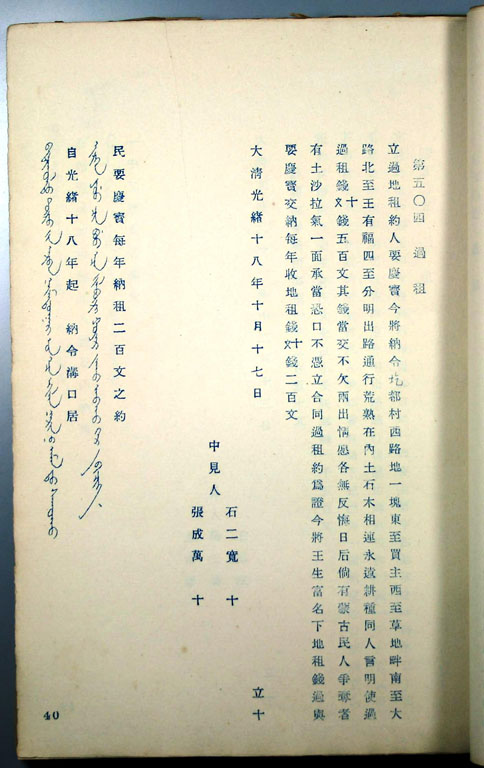 第五〇四 過租
立過地租約人要慶寳今將納令圪都村西路地一塊東至買主西至草地畔南至大
路北至王有福四至分明出路通行荒熟在內土石木相連永遠耕種同人言明使過
過租錢十文錢五百文其錢當交不欠兩出情愿各無反悔日后倘有蒙古民人爭奪者
有土沙拉氣一面承當恐口不憑立合同過租約爲證今將王生富名下地租錢過與
要慶寳交納每年收地租錢十文錢二百文
大清光緒十八年十月十七日 立十
中見人
石二寬 十
張成萬 十
民要慶寳每年納租二百文之約
自光緒十八年起 納令溝口居
40